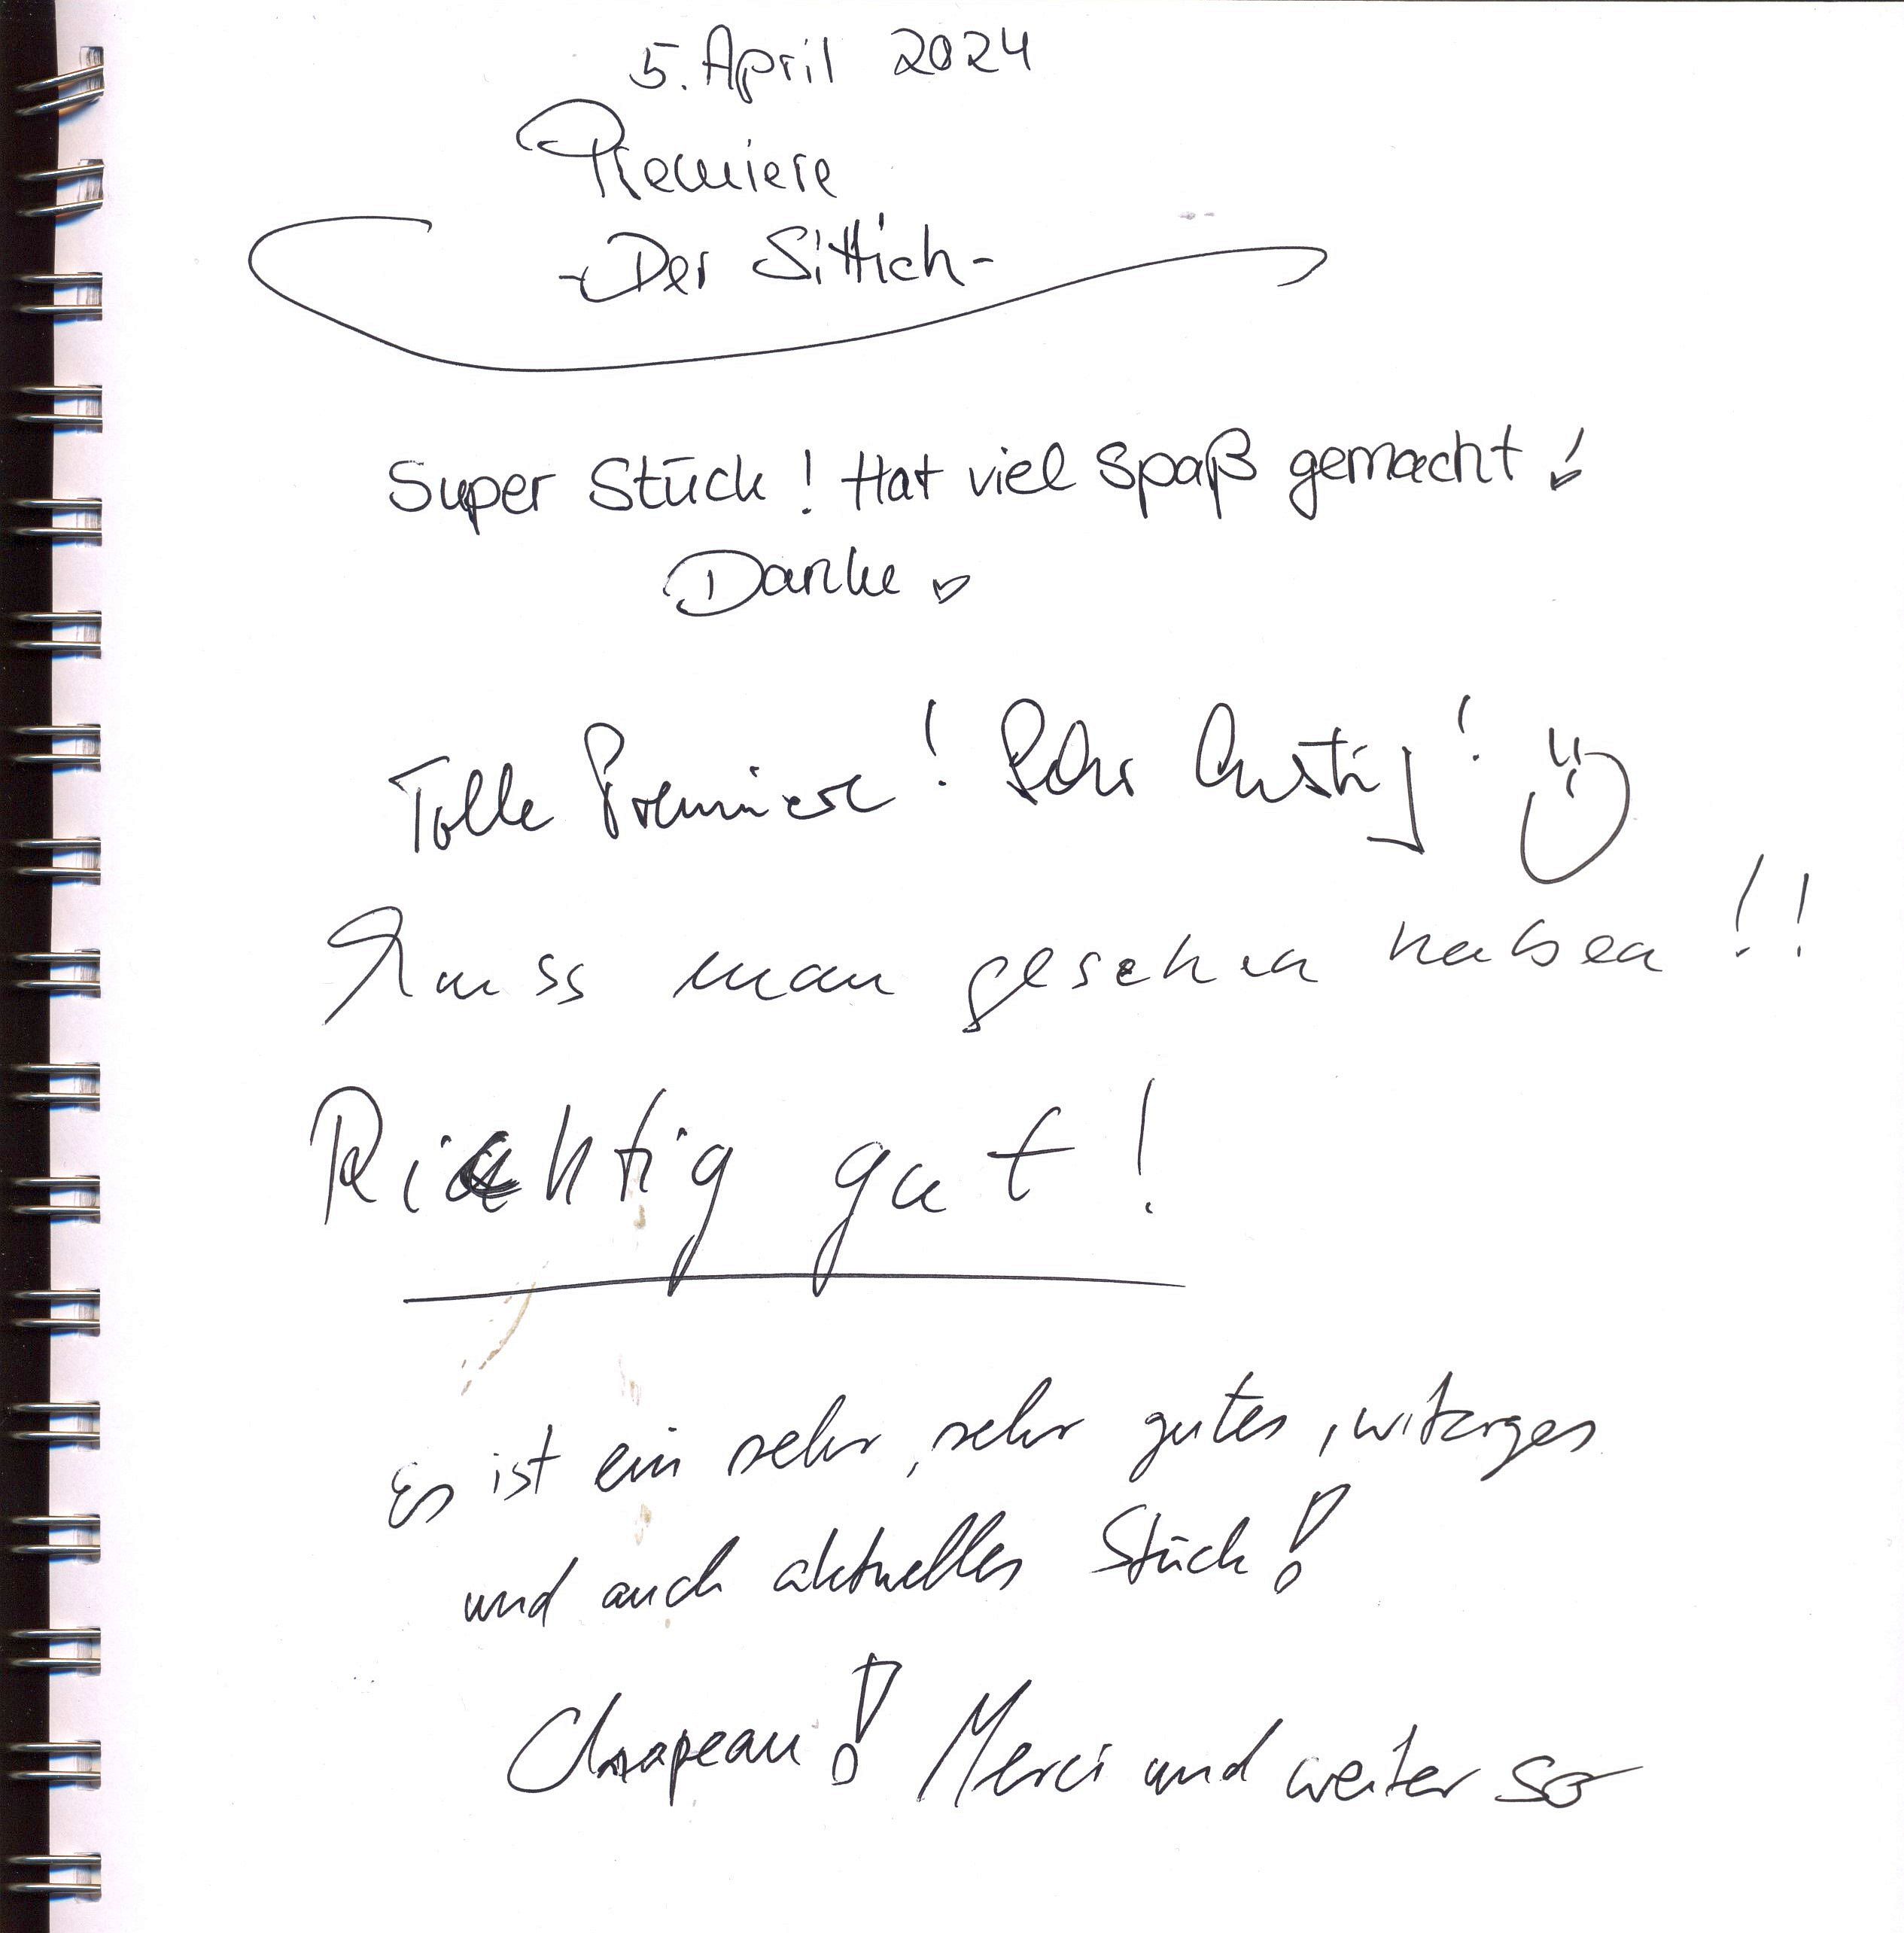 5. April 2024
Premiere
- Der Sittich -
Super Stück! Hat viel Spaß gemacht!
Danke ♡
Tolle Premiere! Sehr lustig! ü
Muss man gesehen haben!!
Richtig gut!
Es ist ein sehr, sehr gutes,
und auch aktuelles Stück!
Chapeau! Merci und weiter so